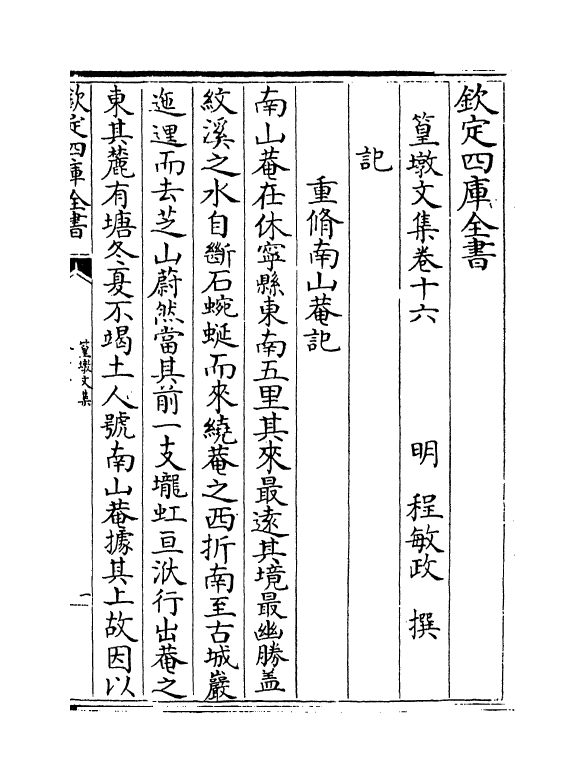 欽定四庫全書
篁墩文集卷十六
明 程敏政 撰
記
重脩南山菴記
南山菴在休寧縣東南五里其來最遠其境最幽勝盖
紋溪之水自斷石蜿蜒而來繞菴之西折南至古城巖
迤邐而去芝山蔚然當其前一支壠虹亘洑行出菴之
東其麓有塘冬夏不竭土人號南山菴據其上故因以
欽定四庫全書
篁墩文集
一